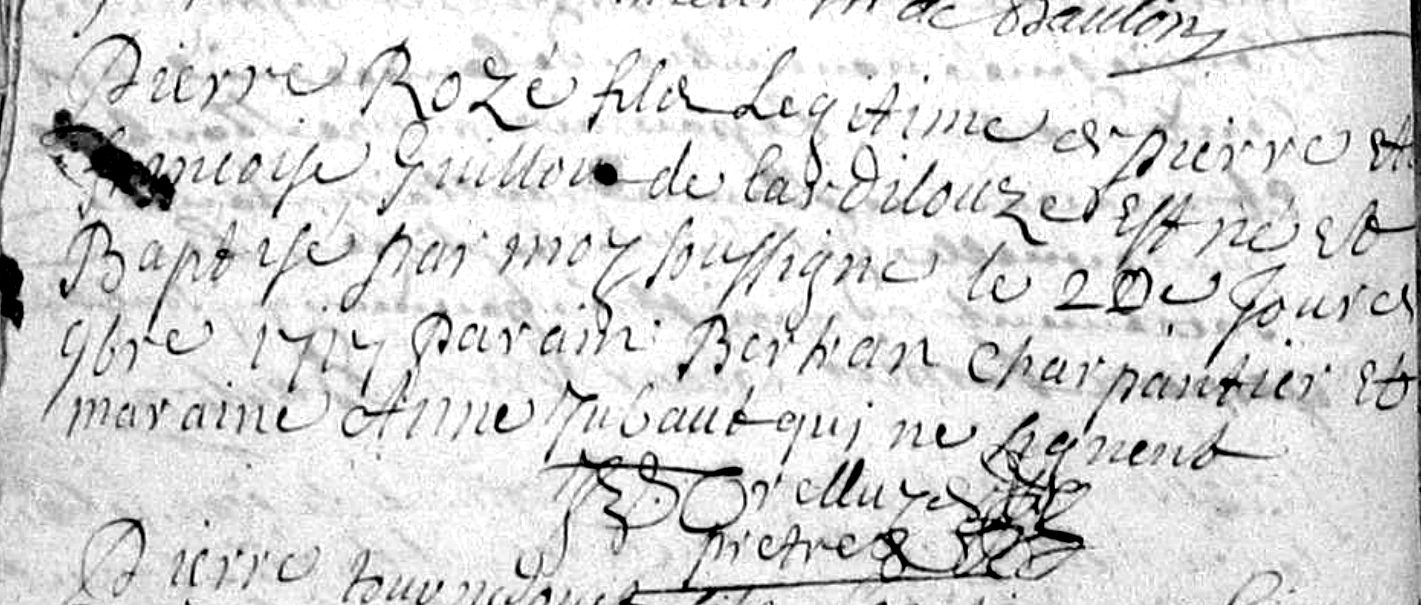 de Daulon
Pierre Rozé fils Legitime de pierre Et
francoise Guillou de lardilouze Est né Et
Baptisé par moy soussigne le 20e Jour de
9bre 1717 Parain Bertran Charpantier Et
maraine Anne Jubaut qui ne signent
prietre
Pierre